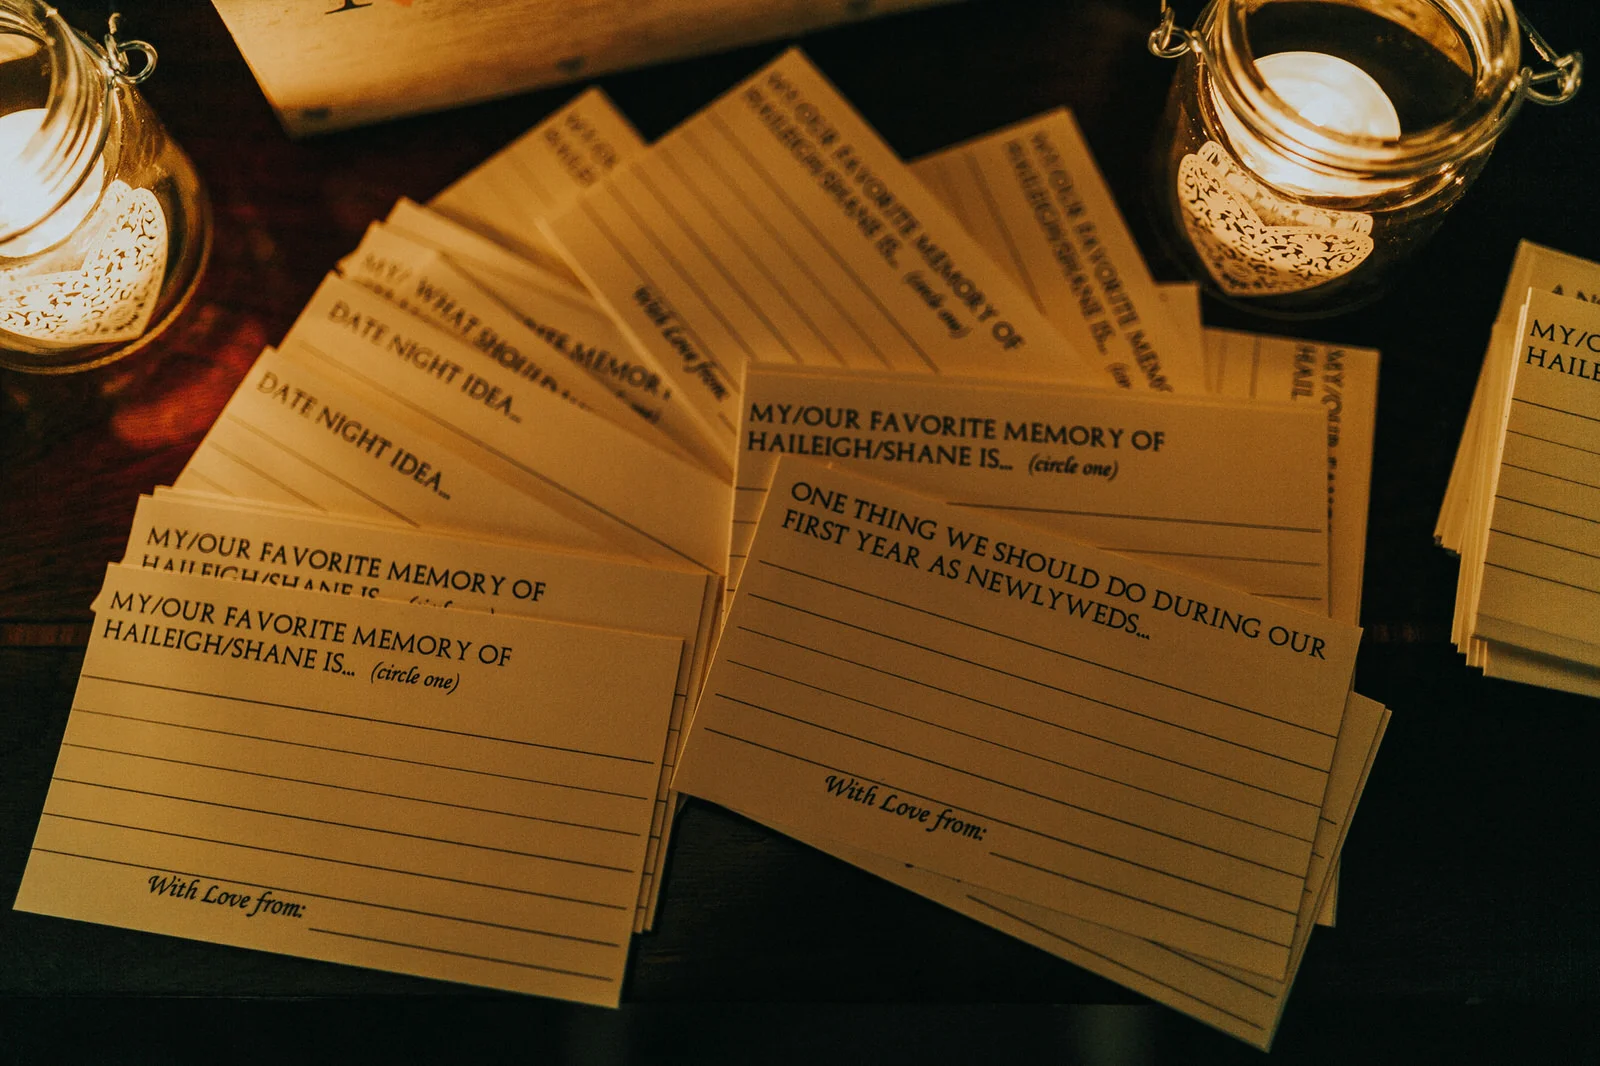 MY/OUR FAVORITE MEMORY OF
HAILEIGH/SHANE IS... (circle one)
With Love from:
MY/OUR FAVORITE MEMORY OF
HAILEIGH/SHANE IS...
DATE NIGHT IDEA...
DATE NIGHT IDEA...
WHAT SHOULD
MY/
MEMORY
MY/OUR FAVORITE MEMORY OF
HAILEIGH/SHANE IS... (circle one)
With Love from:
MY/OUR FAVORITE MEMORY
HAILEIGH/SHANE IS...
MY/OUR FAVORITE MEMORY OF
HAILEIGH/SHANE IS... (circle one)
ONE THING WE SHOULD DO DURING OUR
FIRST YEAR AS NEWLYWEDS...
With Love from:
MY/OUR
HAIL
MY/O
HAILE